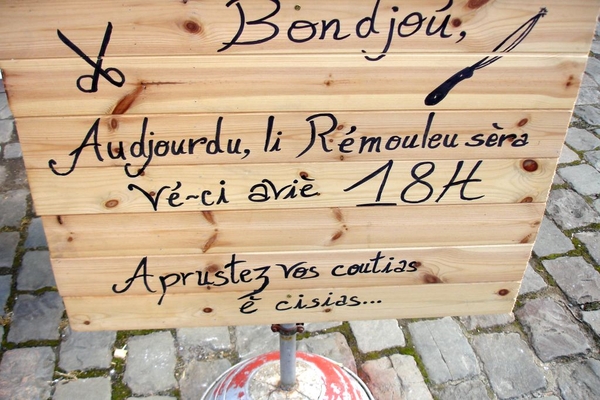 Bondjoú,
Audjourdu, li Rémouleu sèra
vé-ci aviè 18H
Aprustez vos coutias
è cisias...